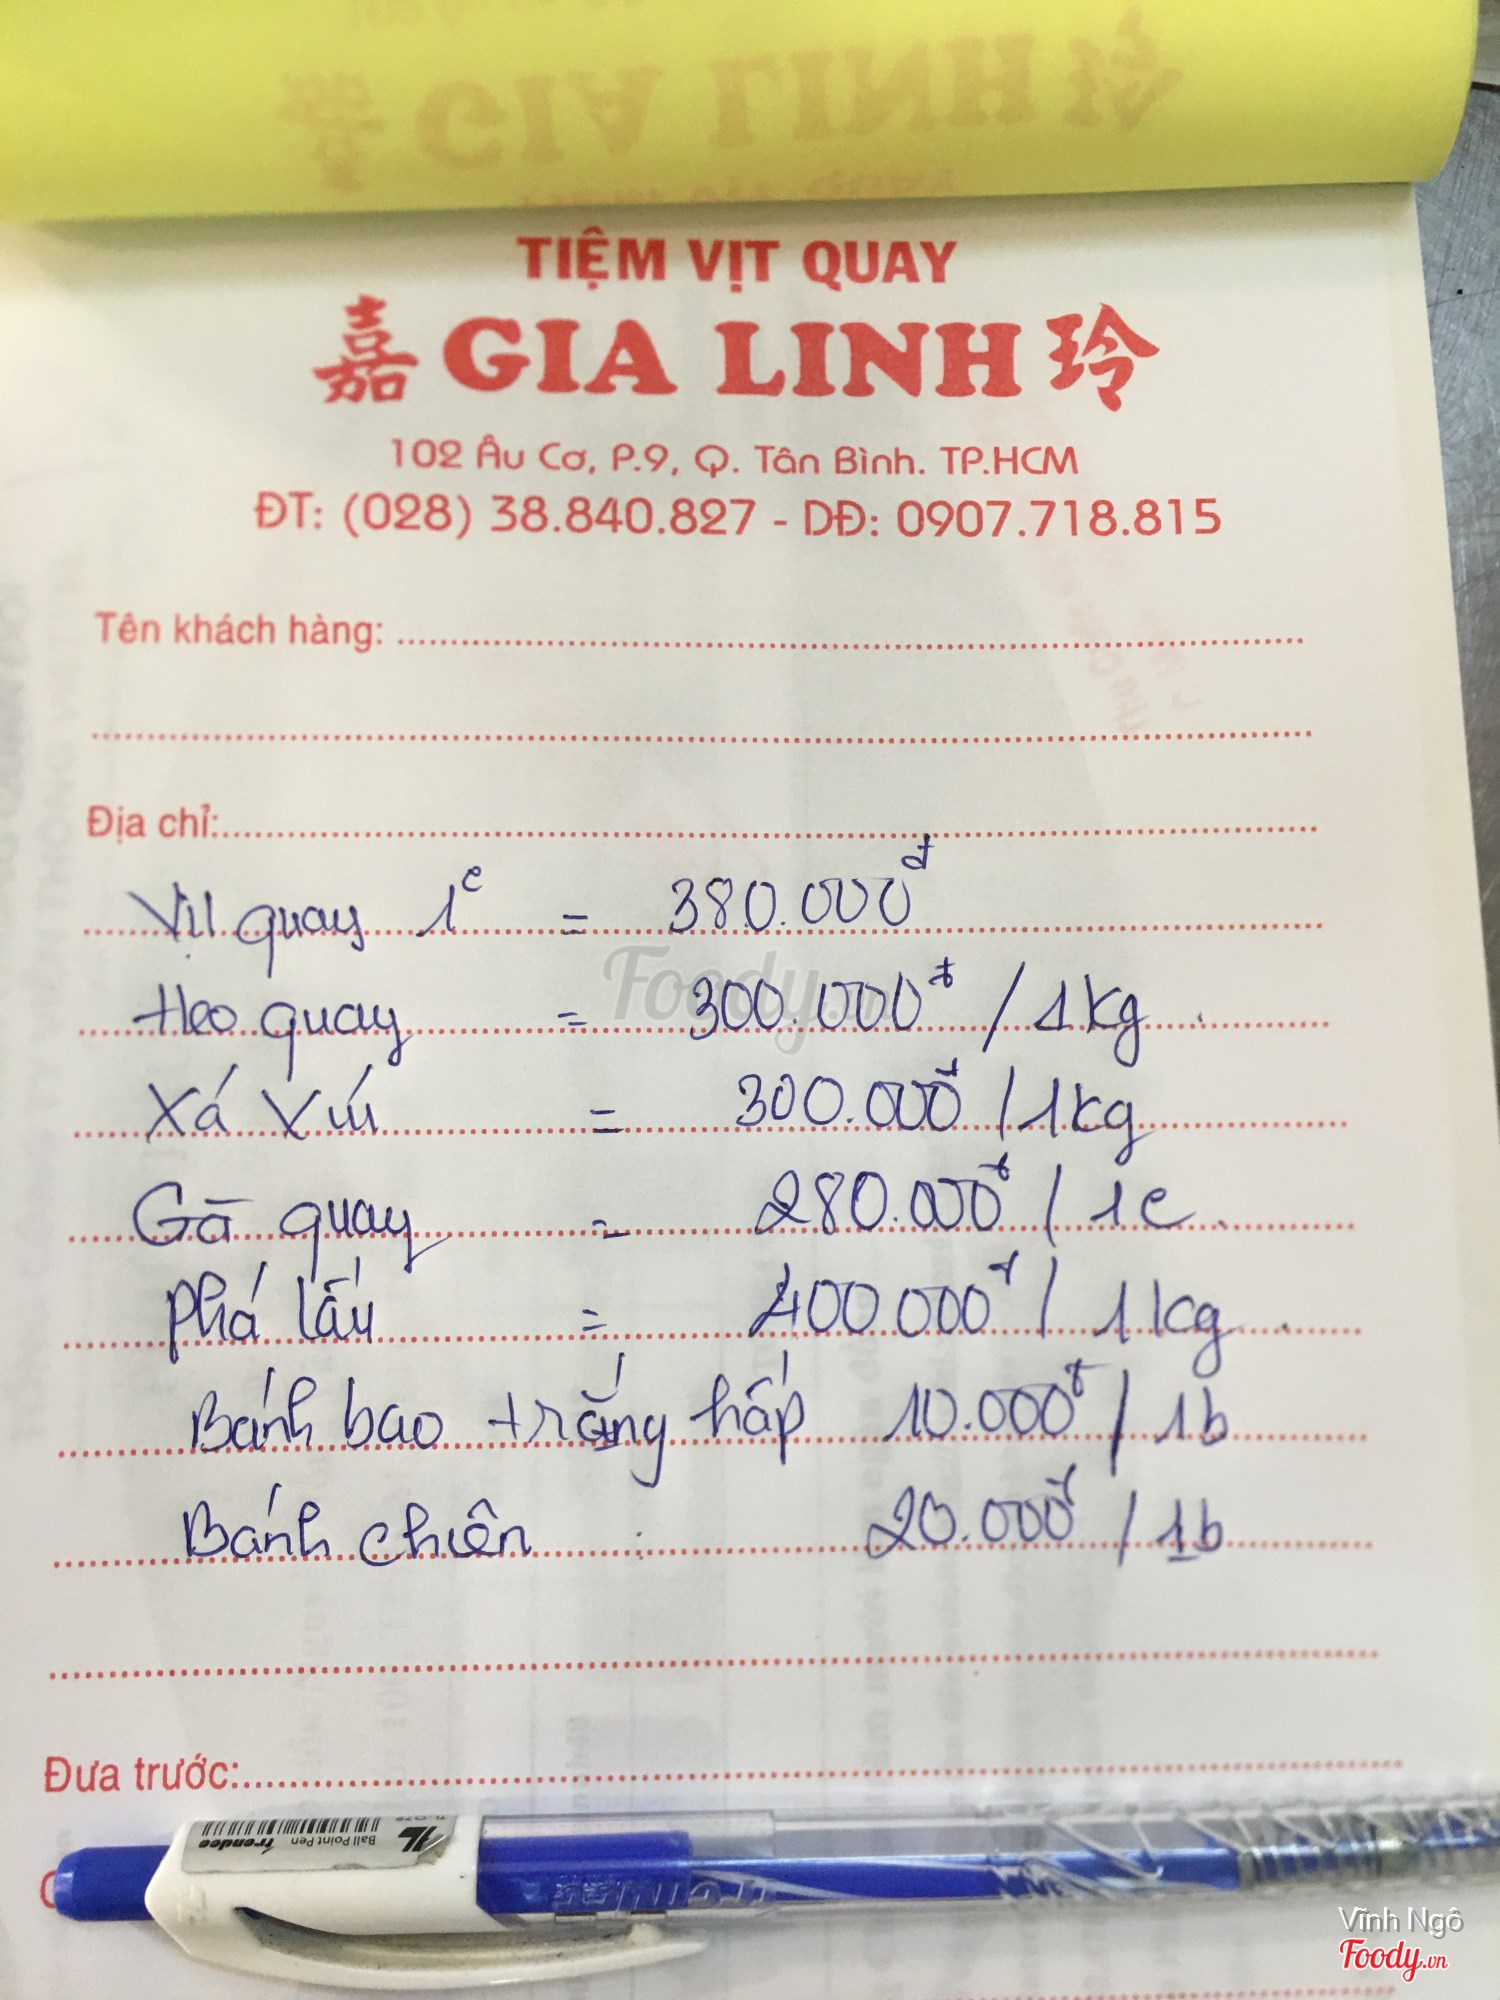 TIỆM VỊT QUAY
嘉 GIA LINH 玲
102 Âu Cơ, P.9, Q. Tân Bình. TP.HCM
ĐT: (028) 38.840.827 - DĐ: 0907.718.815
Tên khách hàng:
Địa chỉ:
Vịt quay 1c = 380.000đ
Heo quay = 300.000đ / 1kg
Xá Xíu = 300.000đ / 1kg
Gà quay = 280.000đ / 1c
Phá lấu = 400.000đ / 1kg
Bánh bao trắng hấp 10.000đ / 1b
Bánh chiên : 20.000đ / 1b
Đưa trước:
Ball Point Pen
Trendee
Foody.vn
Vĩnh Ngô
Foody.vn